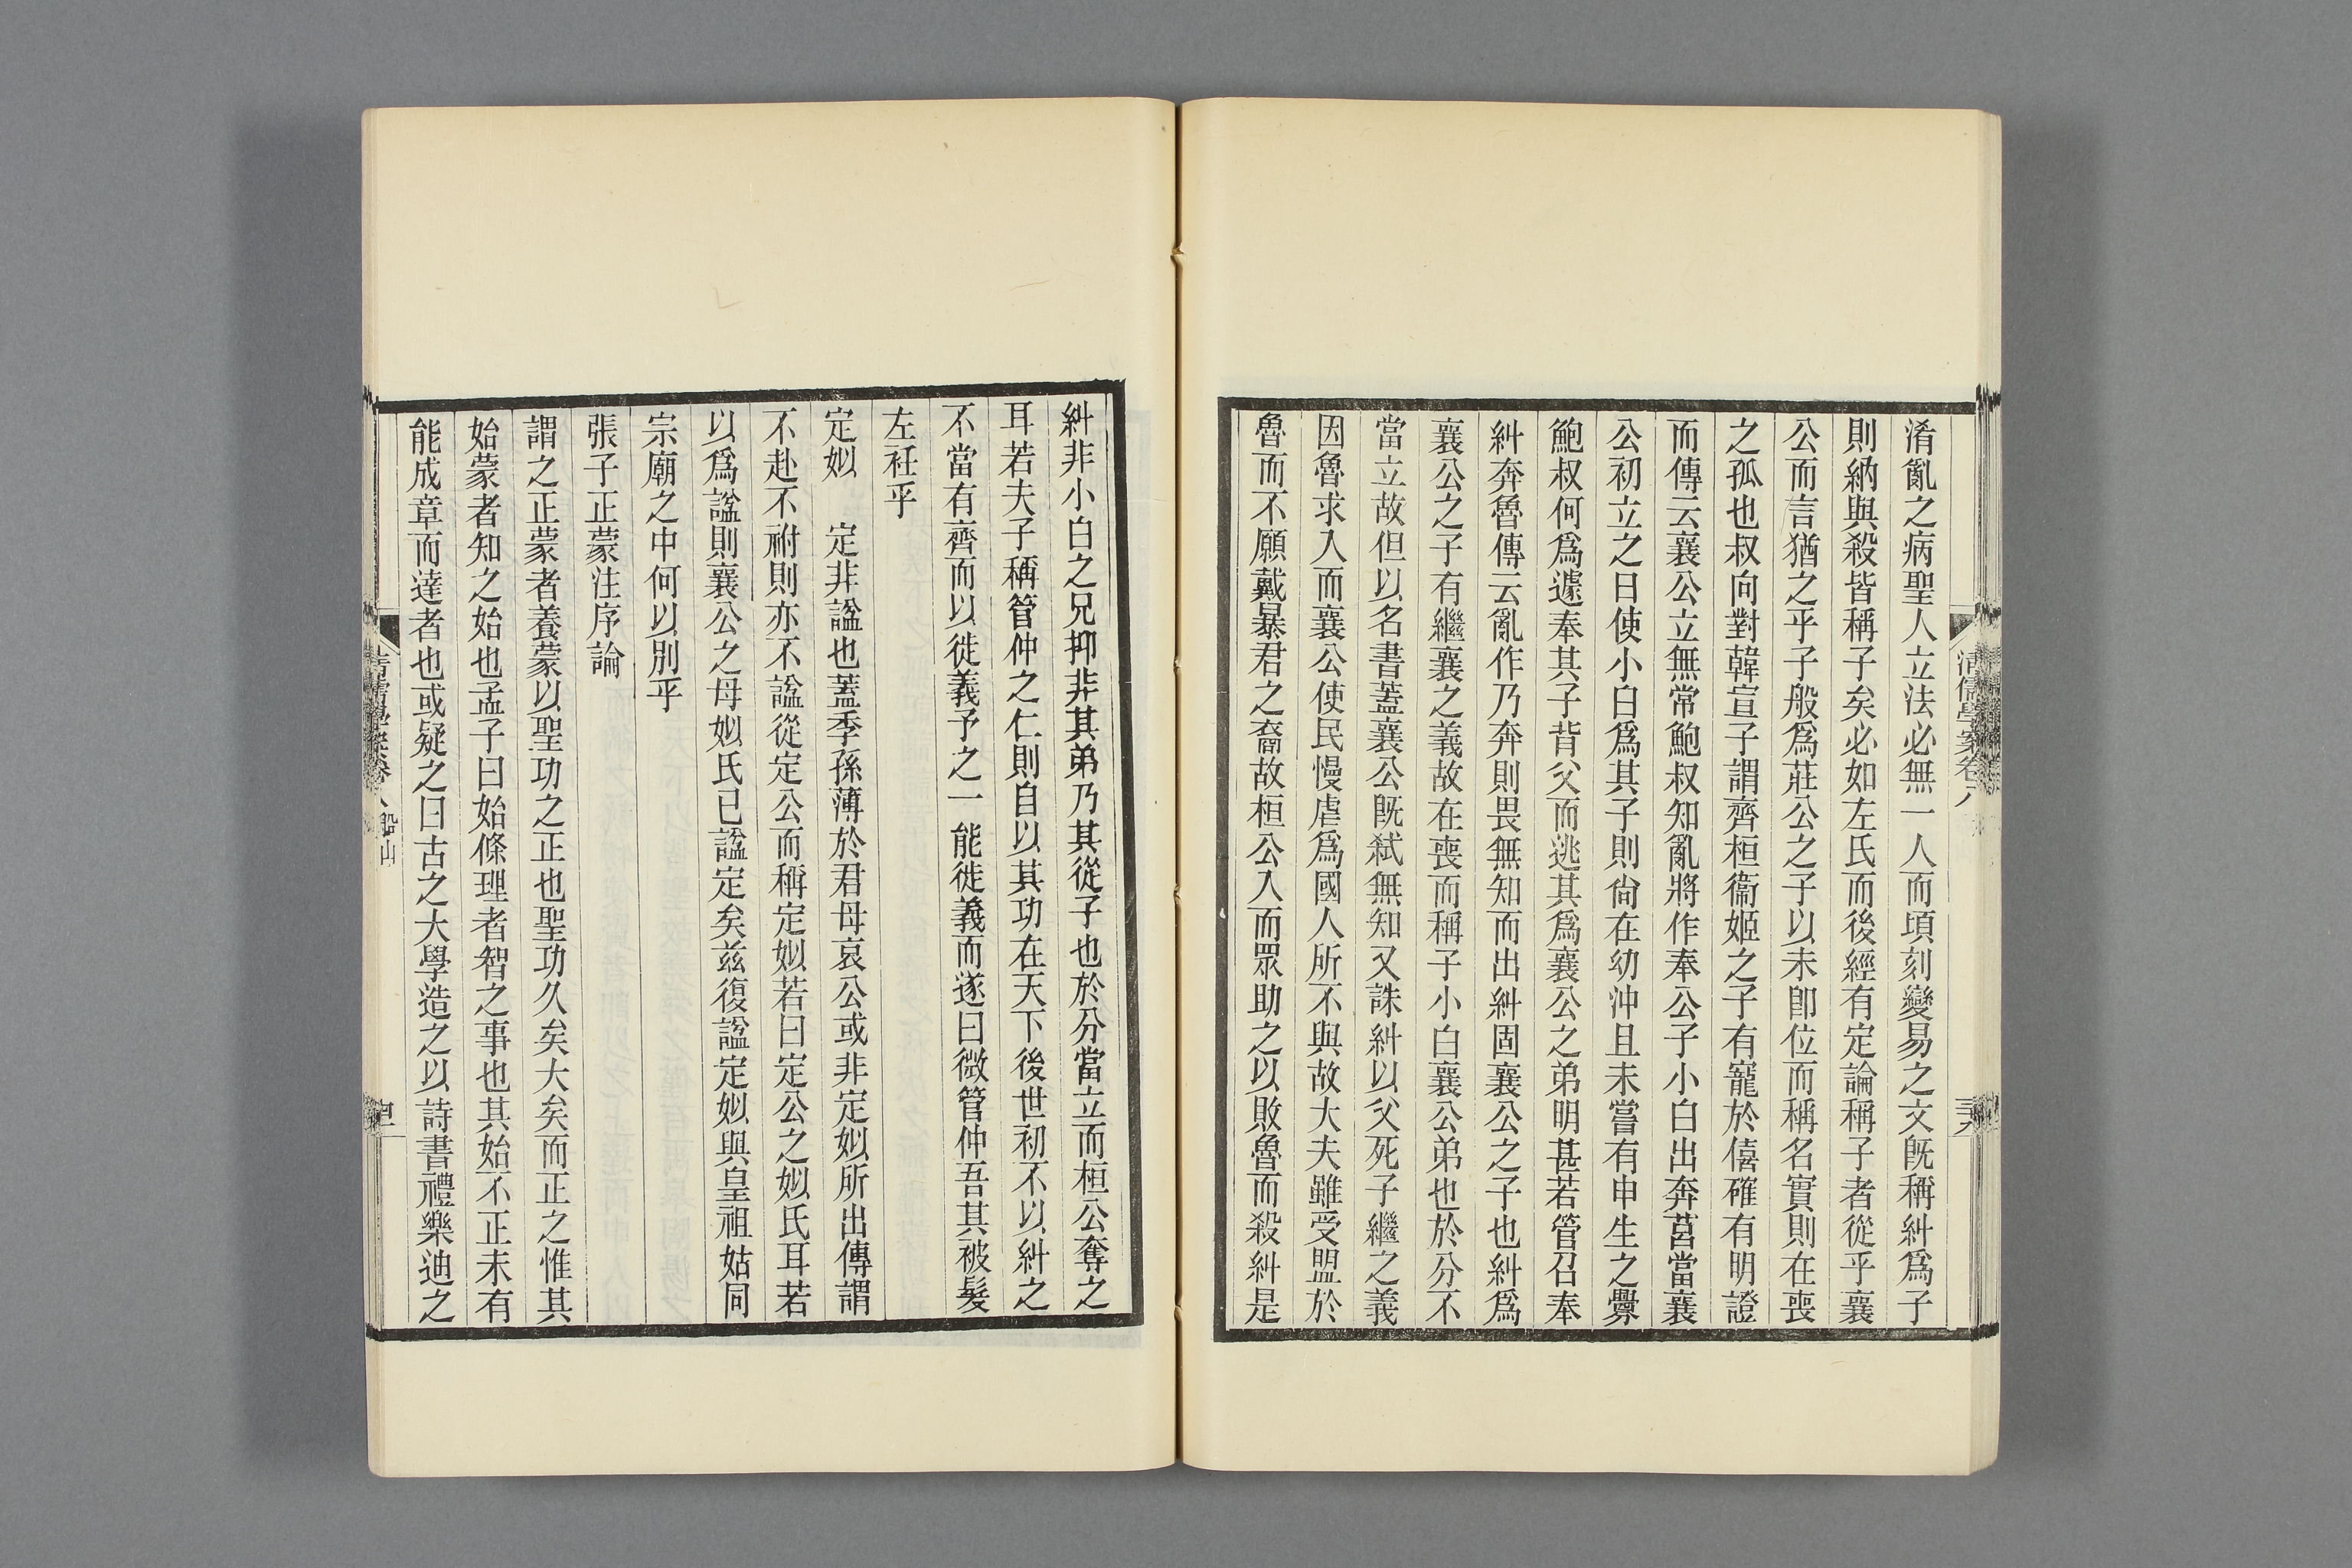 淆亂之病聖人立法必無一人而頃刻變易之文旣稱糾爲子
則納與殺皆稱子矣必如左氏而後經有定論稱子者從乎襄
公而言猶之乎子般爲莊公之子以未卽位而稱名實則在喪
之孤也叔向對韓宣子謂齊桓衞姬之子有寵於僖確有明證
而傳云襄公立無常鮑叔知亂將作奉公子小白出奔莒當襄
公初立之日使小白爲其子則尙在幼沖且未嘗有申生之釁
鮑叔何爲遽奉其子背父而逃其爲襄公之弟明甚若管召奉
糾奔魯傳云亂作乃奔則畏無知而出糾固襄公之子也糾爲
襄公之子有繼襄之義故在喪而稱子小白襄公弟也於分不
當立故但以名書蓋襄公旣弒無知又誅糾以父死子繼之義
因魯求入而襄公使民慢虐爲國人所不與故大夫雖受盟於
魯而不願戴暴君之裔故桓公入而眾助之以敗魯而殺糾是
清儒學案卷八
糾非小白之兄抑非其弟乃其從子也於分當立而桓公奪之
耳若夫子稱管仲之仁則自以其功在天下後世初不以糾之
不當有齊而以徙義予之一能徙義而遂曰微管仲吾其被髮
左衽乎
定姒　定非諡也蓋季孫薄於君母哀公或非定姒所出傳謂
不赴不祔則亦不諡從定公而稱定姒若曰定公之姒氏耳若
以爲諡則襄公之母姒氏已諡定矣茲復諡定姒與皇祖姑同
宗廟之中何以別乎
張子正蒙注序論
謂之正蒙者養蒙以聖功之正也聖功久矣大矣而正之惟其
始蒙者知之始也孟子曰始條理者智之事也其始不正未有
能成章而達者也或疑之曰古之大學造之以詩書禮樂迪之
清儒學案卷八 船山